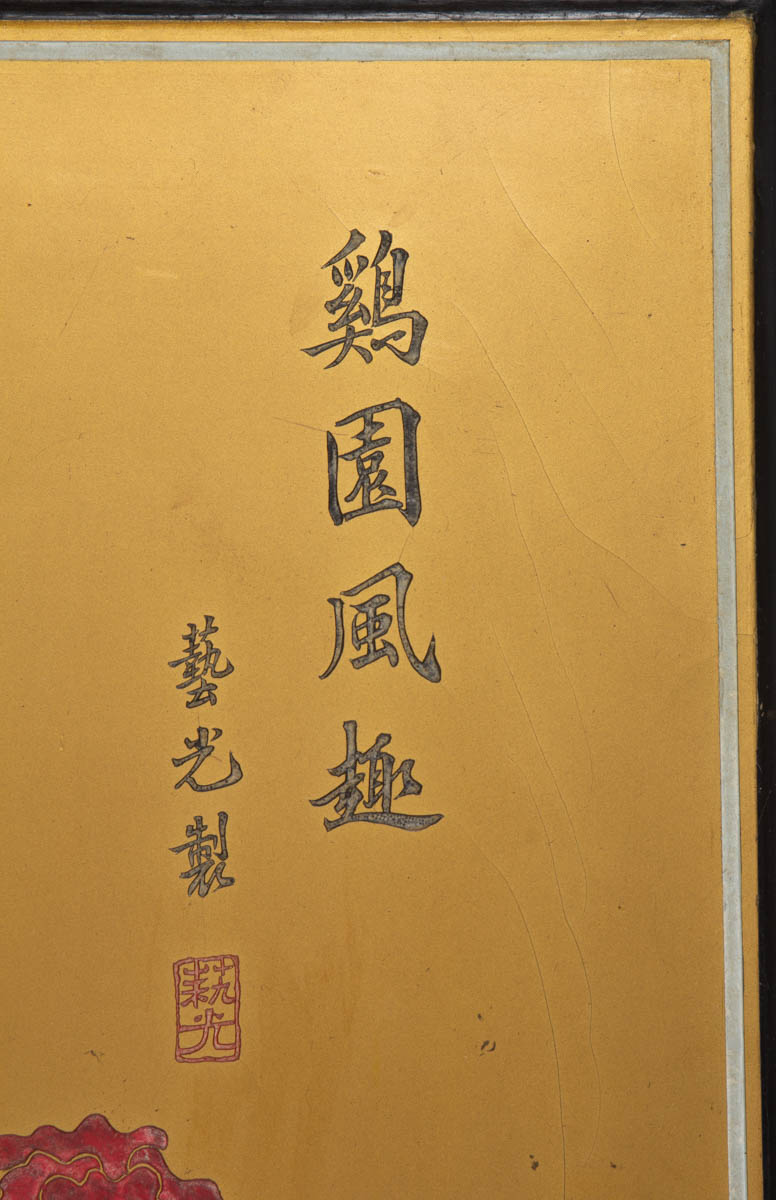 鷄園風趣
藝光製
藝光